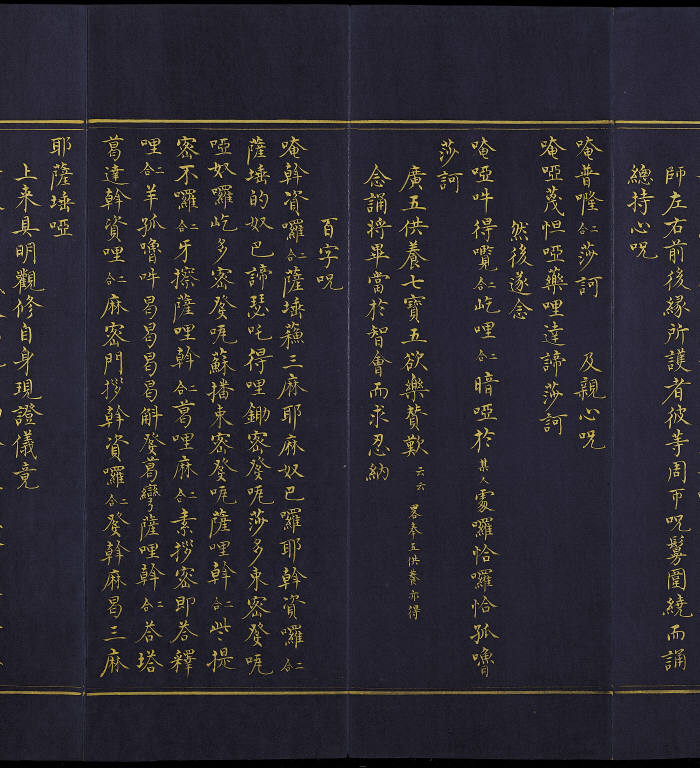 師左右前後緣所護者彼等周帀呪鬘圍繞而誦
總持心呪
唵普㘕二合莎訶 及親心呪
唵啞蔑怛啞藥哩達諦莎訶
然後遂念
唵啞吽得囕二合屹哩二合暗啞於其人處囉恰囉恰孤嚕
莎訶
廣五供養七寶五欲樂贊歎六六 畧奉五供養亦得
念誦將畢當於智會而求忍納
百字呪
唵斡資囉二合薩埵蘓三麻耶麻奴巴囉耶斡資囉二合
薩埵的奴巴諦瑟吒得哩鋤密發㖿莎多束密發㖿
啞奴囉屹多密發㖿蘇播束密發㖿薩哩斡二合些提
密不囉二合牙擦薩哩斡二合葛哩麻二合素拶密即荅釋
哩二合羊孤嚕吽曷曷曷曷斛發葛彎薩哩斡二合荅塔
葛達斡資哩二合麻密門拶斡資囉二合發斡麻曷三麻
耶薩埵啞
上来具明觀修自身現證儀竟